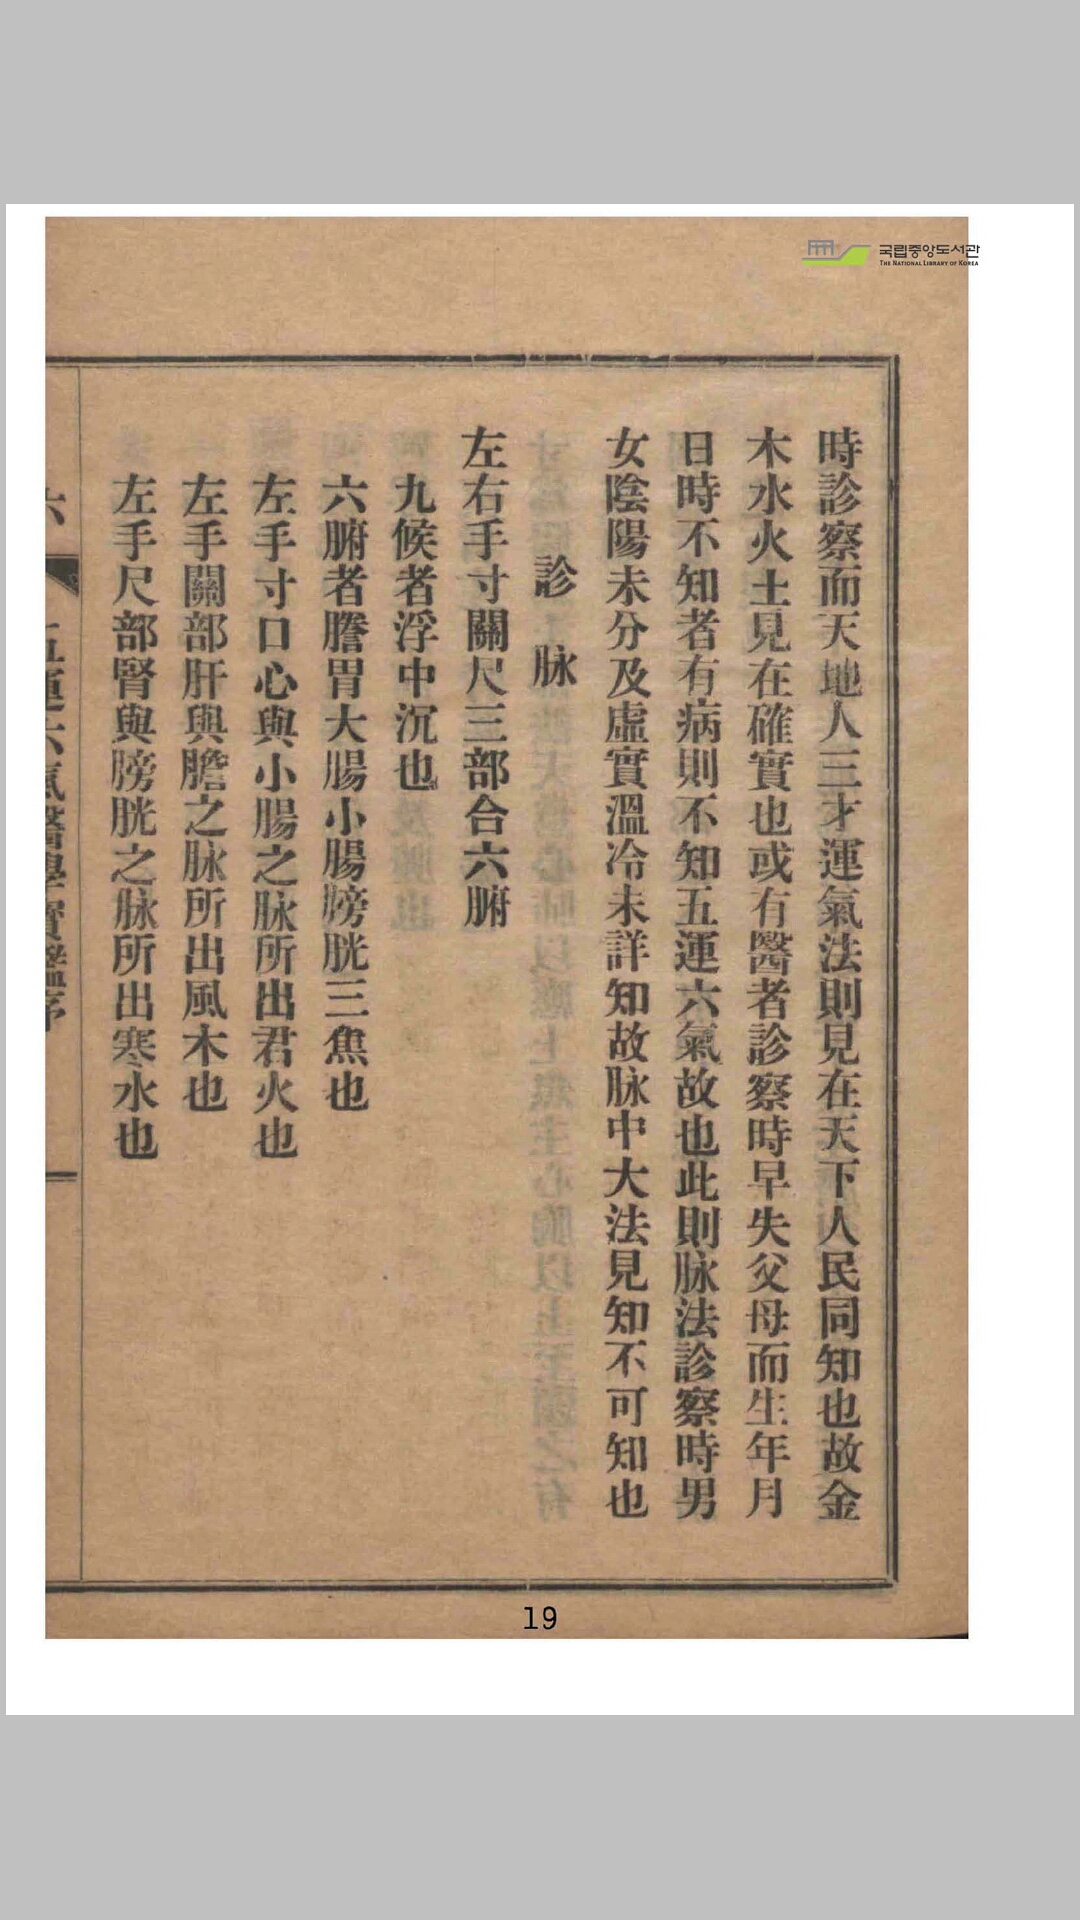 국립중앙도서관
THE NATIONAL LIBRARY OF KOREA
時診察而天地人三才運氣法則見在天下人民同知也故金
木水火土見在確實也或有醫者診察時早失父母而生年月
日時不知者有病則不知五運六氣故也此則脉法診察時男
女陰陽未分及虛實溫冷未詳知故脉中大法見知不可知也
診脉
左右手寸關尺三部合六腑
九候者浮中沉也
六腑者膽胃大腸小腸膀胱三焦也
左手寸口心與小腸之脉所出君火也
左手關部肝與膽之脉所出風木也
左手尺部腎與膀胱之脉所出寒水也
六
五運六氣醫學寶鑑序
19